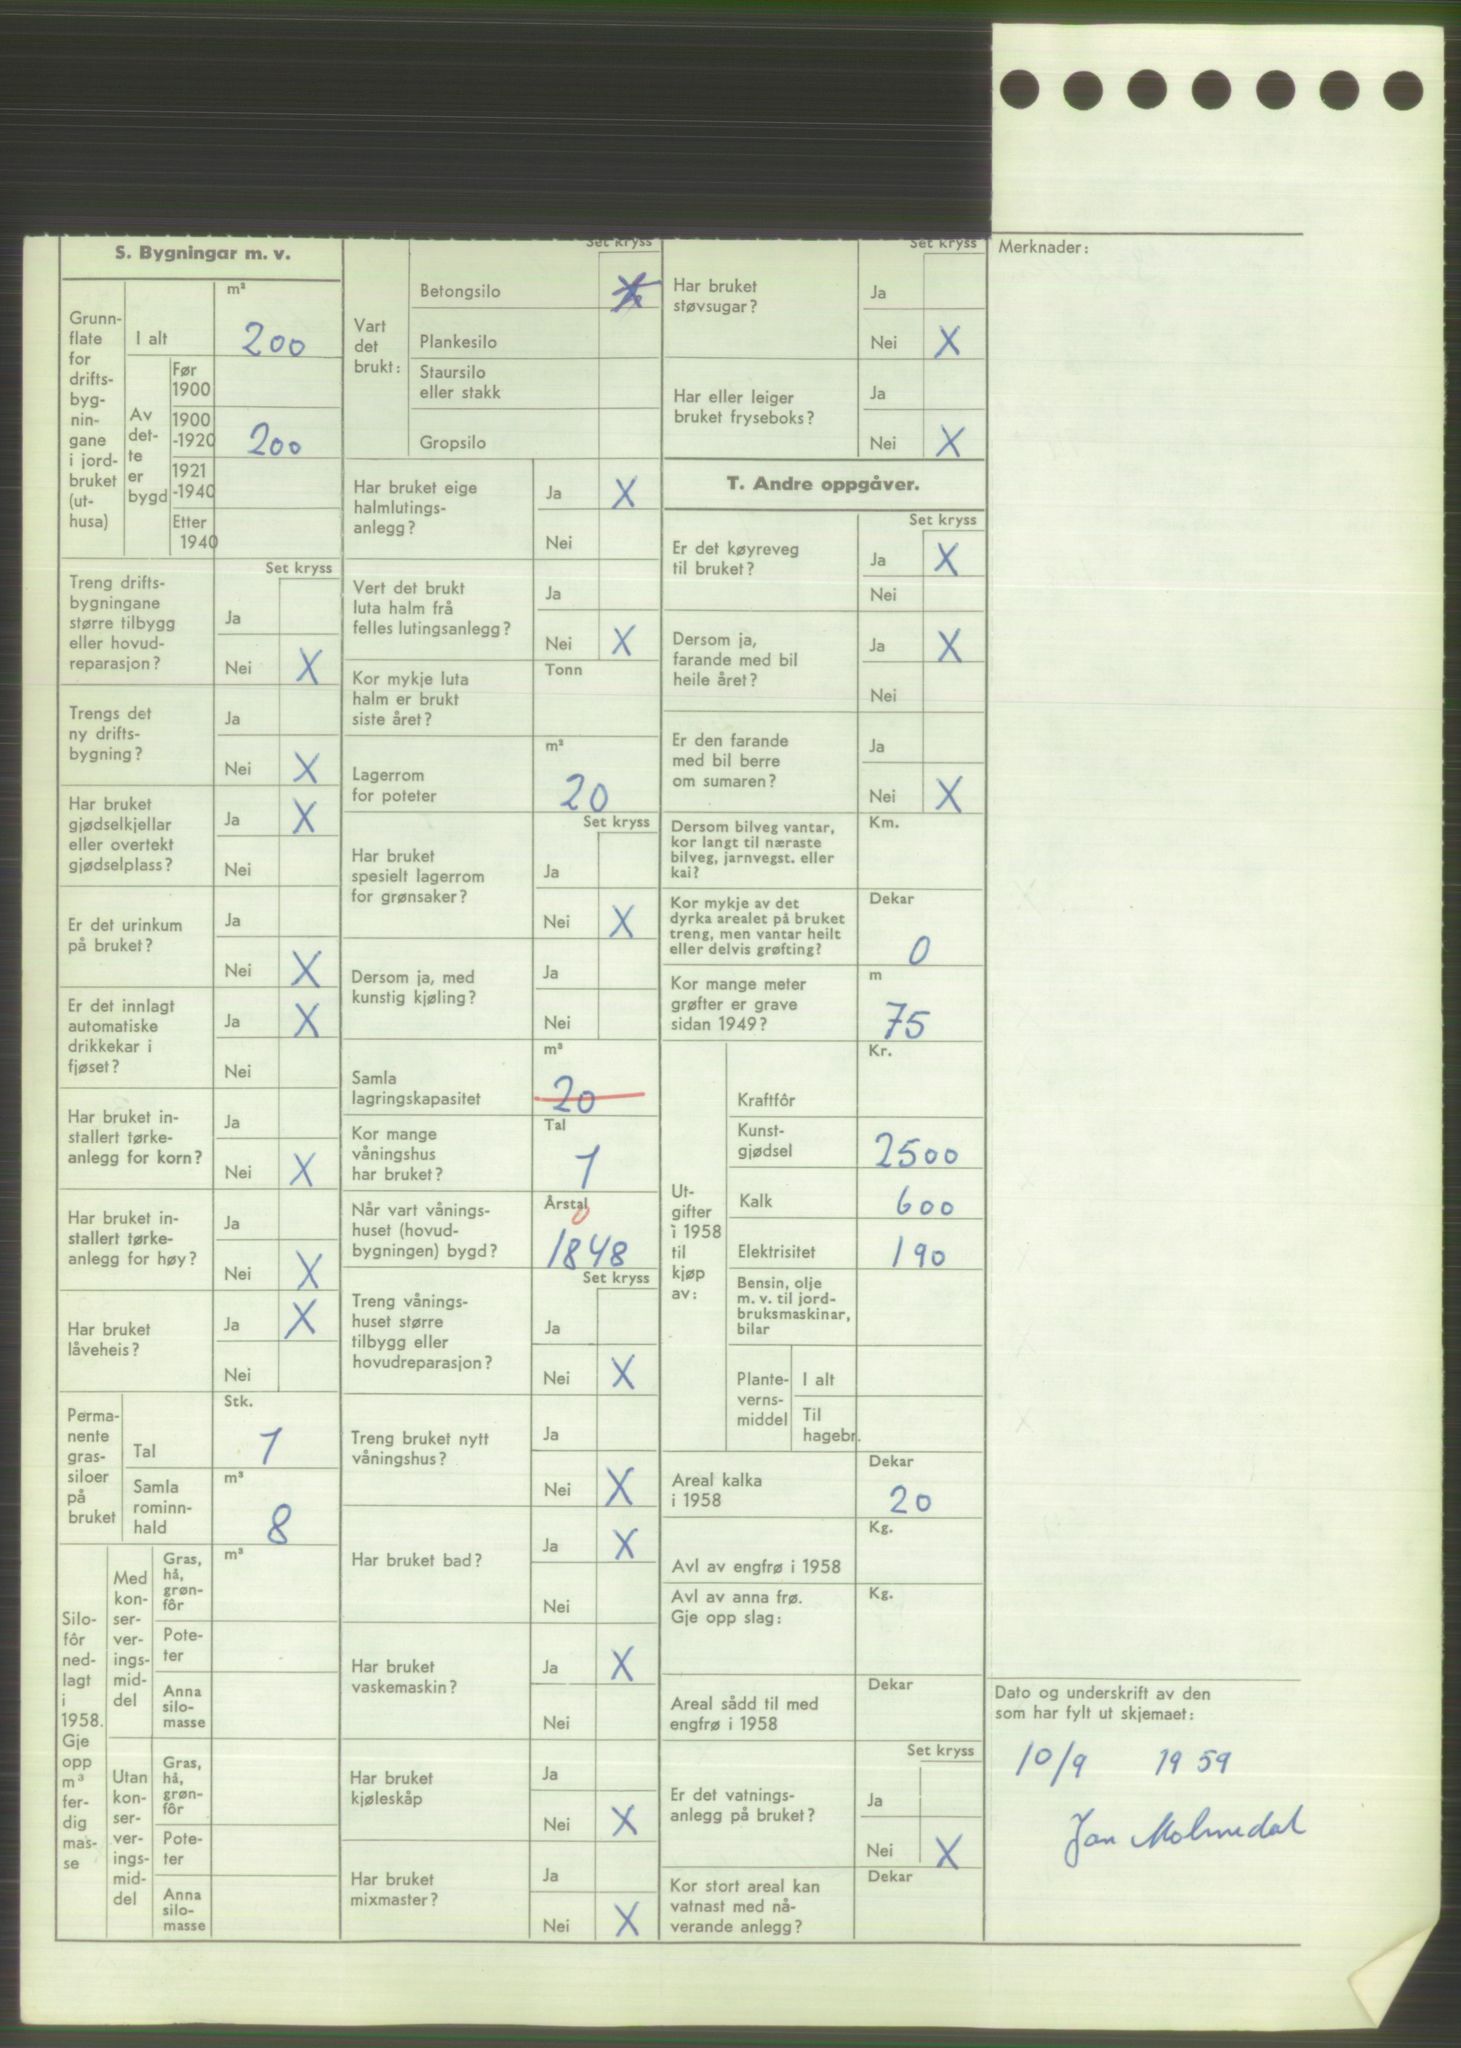 S. Bygningar m. v.
Grunn-
flate
for
drifts-
byg-
nin-
gane
i jord-
bruket
(ut-
husa)
m²
I alt 200
Av
det-
te
er
bygd
Før
1900
1900
-1920 200
1921
-1940
Etter
1940
Set kryss
Treng drifts-
bygningane
større tilbygg
eller hovud-
reparasjon?
Ja
Nei X
Trengs det
ny drifts-
bygning?
Ja
Nei X
Har bruket
gjødselkjellar
eller overtekt
gjødselplass?
Ja X
Nei
Er det urinkum
på bruket?
Ja
Nei X
Er det innlagt
automatiske
drikkekar i
fjøset?
Ja X
Nei
Har bruket in-
stallert tørke-
anlegg for korn?
Ja
Nei X
Har bruket in-
stallert tørke-
anlegg for høy?
Ja
Nei X
Har bruket
låveheis?
Ja X
Nei
Perma-
nente
gras-
siloer
på
bruket
Stk.
Tal 1
Samla
rominn-
hald
m³
8
Silo-
fôr
ned-
lagt
i
1958.
Gje
opp
m³
fer-
dig
mas-
se
Med
kon-
ser-
ver-
ings-
mid-
del
Gras,
hå,
grøn-
fôr
m³
Pote-
ter
Anna
silo-
masse
Utan
kon-
ser-
ver-
ings-
mid-
del
Gras,
hå,
grøn-
fôr
Pote-
ter
Anna
silo-
masse
Set kryss
Vart
det
brukt:
Betongsilo X
Plankesilo
Staursilo
eller stakk
Gropsilo
Har bruket eige
halmlutings-
anlegg?
Ja X
Nei
Vert det brukt
luta halm frå
felles lutingsanlegg?
Ja
Nei X
Kor mykje luta
halm er brukt
siste året?
Tonn
Lagerrom
for poteter
m³
20
Set kryss
Har bruket
spesielt lagerrom
for grønsaker?
Ja
Nei X
Dersom ja, med
kunstig kjøling?
Ja
Nei
Samla
lagringskapasitet
m³
20
Kor mange
våningshus
har bruket?
Tal
1
Når vart vånings-
huset (hovud-
bygningen) bygd?
Årstal
0
1848
Set kryss
Treng vånings-
huset større
tilbygg eller
hovudreparasjon?
Ja
Nei X
Treng bruket nytt
våningshus?
Ja
Nei X
Har bruket bad?
Ja X
Nei
Har bruket
vaskemaskin?
Ja X
Nei
Har bruket
kjøleskåp
Ja
Nei X
Har bruket
mixmaster?
Ja
Nei X
Set kryss
Har bruket
støvsugar?
Ja
Nei X
Har eller leiger
bruket fryseboks?
Ja
Nei X
T. Andre oppgåver.
Set kryss
Er det køyreveg
til bruket?
Ja X
Nei
Dersom ja,
farande med bil
heile året?
Ja X
Nei
Er den farande
med bil berre
om sumaren?
Ja
Nei X
Dersom bilveg vantar,
kor langt til næraste
bilveg, jarnvegst. eller
kai?
Km.
Kor mykje av det
dyrka arealet på bruket
treng, men vantar heilt
eller delvis grøfting?
Dekar
0
Kor mange meter
grøfter er grave
sidan 1949?
m
75
Ut-
gifter
i 1958
til
kjøp
av:
Kr.
Kraftfôr
Kunst-
gjødsel 2500
Kalk 600
Elektrisitet 190
Bensin, olje
m. v. til jord-
bruksmaskinar,
bilar
Plante-
verns-
middel
I alt
Til
hagebr.
Areal kalka
i 1958
Dekar
20
Avl av engfrø i 1958
Kg.
Avl av anna frø.
Gje opp slag:
Kg.
Areal sådd til med
engfrø i 1958
Dekar
Set kryss
Er det vatnings-
anlegg på bruket?
Ja
Nei X
Kor stort areal kan
vatnast med nå-
verande anlegg?
Dekar
Merknader:
Dato og underskrift av den
som har fylt ut skjemaet:
10/9 1959
Jan Molmedal